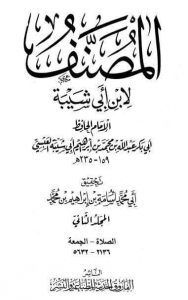 المصنف
لابن أبي شيبة
الإمام الحافظ
أبي بكر عبد الله بن محمد بن إبراهيم أبي شيبة العبسي
١٥٩ - ٢٣٥هـ
تحقيق
أبي محمد أسامة بن إبراهيم بن محمد
المجلد الثاني
الصلاة - الجمعة
٢١٣٦ - ٥٦٣٢
الناشر
الفاروق الحديثة للطباعة والنشر